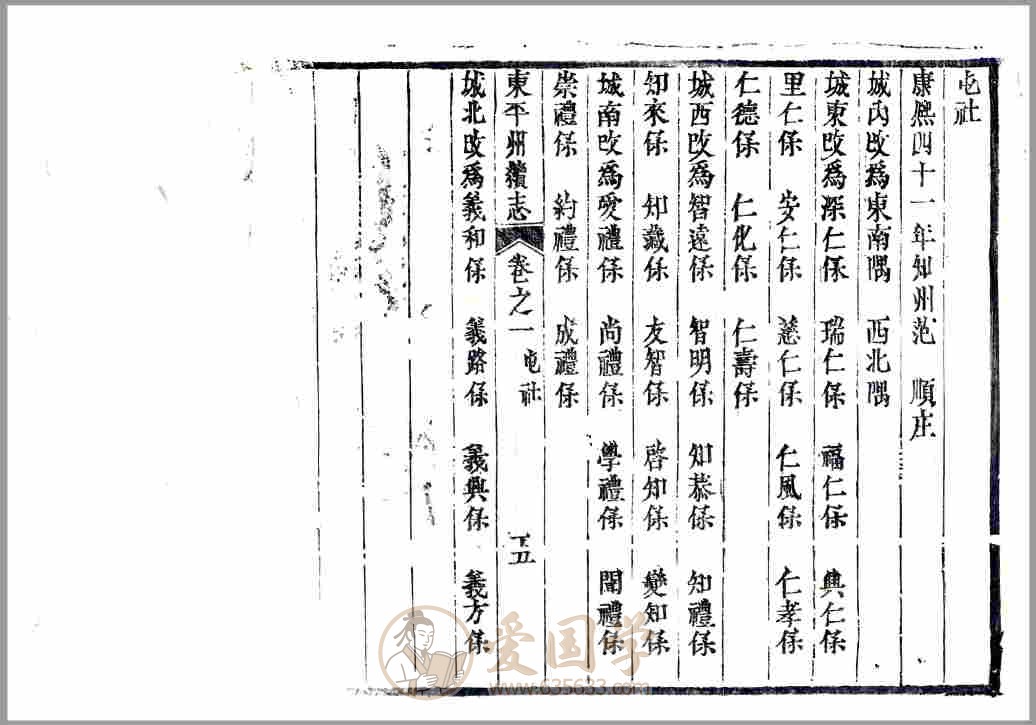 屯社
康熈四十一年知州范 順庄
城內改爲東南隅 西北隅
城東改爲深仁保 瑞仁保 福仁保 興仁保
里仁保 安仁保 慈仁保 仁風保 仁孝保
仁德保 仁化保 仁壽保
城西改爲智遠保 智明保 知恭保 知禮保
知來保 知藏保 友智保 啓知保 變知保
城南改爲愛禮保 尚禮保 學禮保 聞禮保
崇禮保 約禮保 成禮保
東平州續志 卷之一 屯社 五
城北改爲義和保 義路保 義興保 義方保
爱国学
www.635633.com